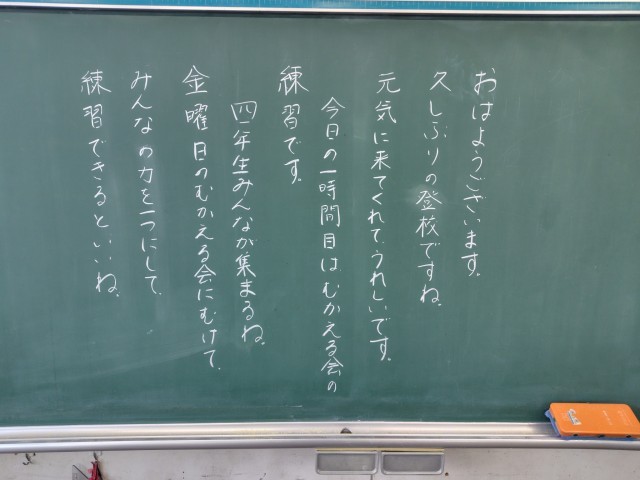 おはようございます。
久しぶりの登校ですね。
元気に来てくれて、うれしいです。
今日の一時間目は、むかえる会の
練習です。
四年生みんなが集まるね。
金曜日のむかえる会にむけて、
みんなの力を一つにして、
練習できるといいね。